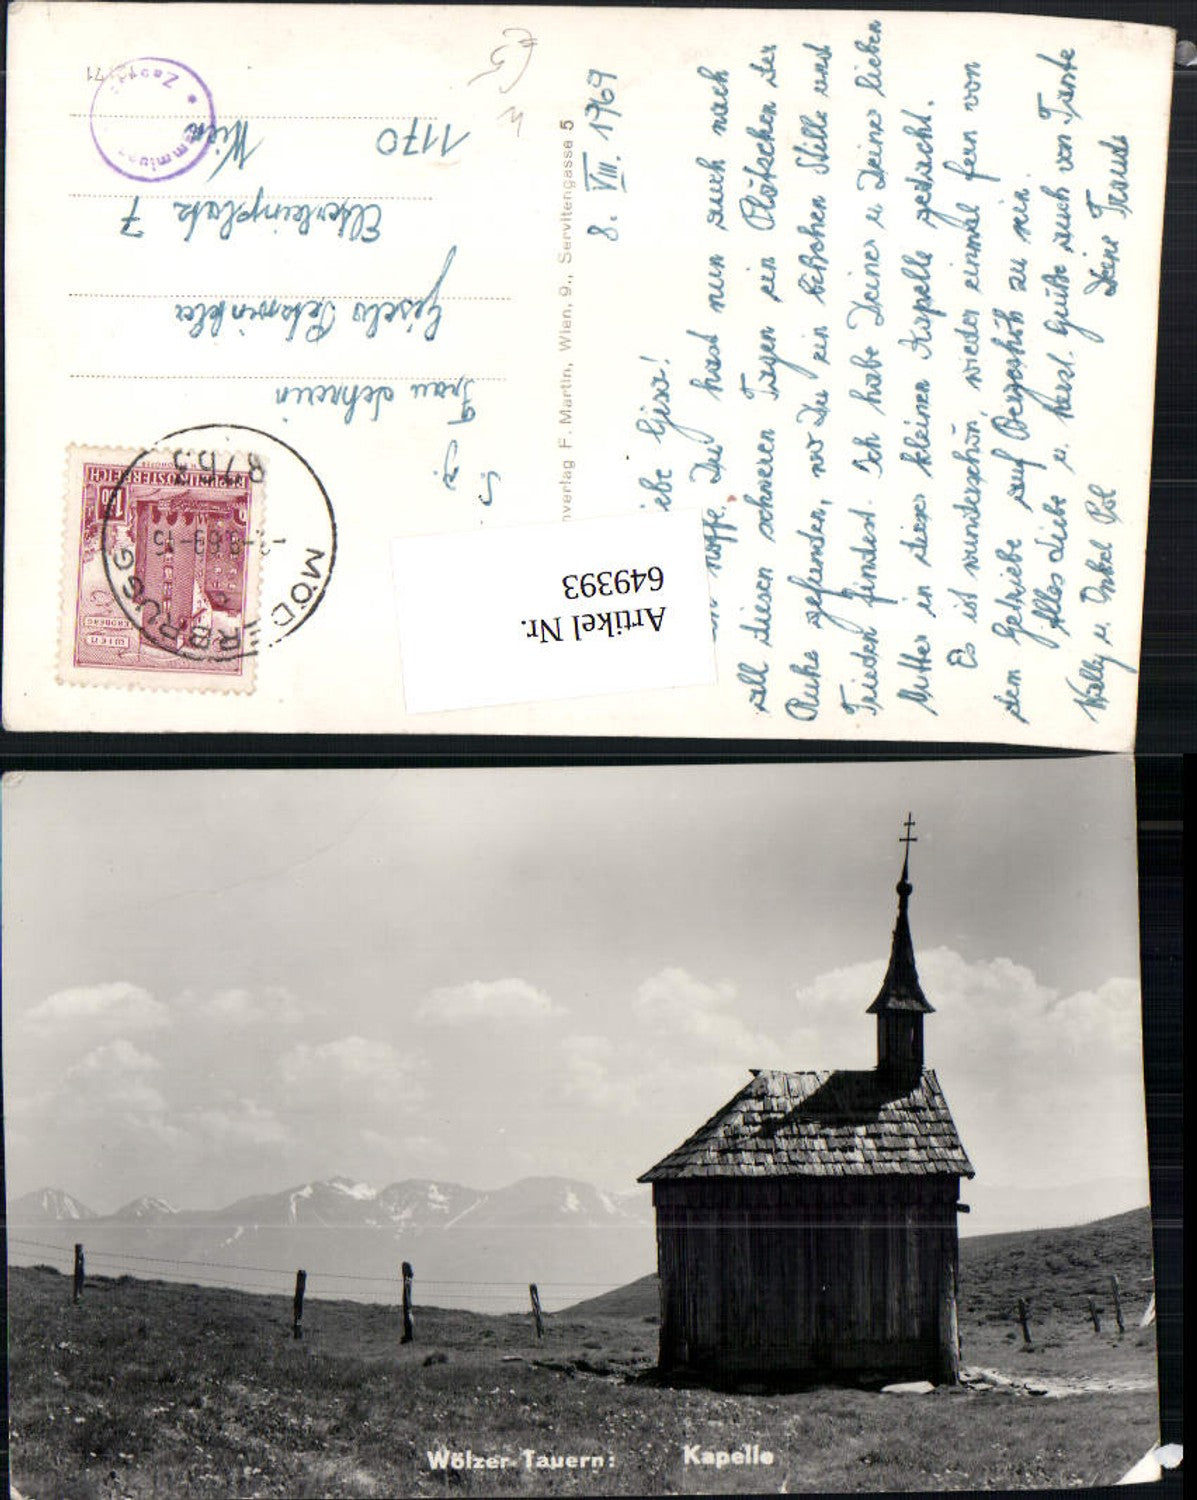 8. VIII. 1969
Liebe Gisa!
Ich hoffe, Du hast nun auch nach
all diesen schweren Tagen ein Plätzchen der
Ruhe gefunden, wo Du ein bißchen Stille und
Frieden findest. Ich habe Deiner u Deiner lieben
Mutter in dieser kleinen Kapelle gedacht.
Es ist wunderschön, wieder einmal fern von
dem Getriebe auf Bergeshöh zu sein.
Alles Liebe u. herzl. Grüße auch von Tante
Wally u. Onkel Pol Deine Traude
nverlag F. Martin, Wien, 9., Servitengasse 5
Frau Schrein
Gisela
Elterleinplatz 7
1170 Wien
REPUBLIK ÖSTERREICH
1.50
WIEN
ERDBERG
MÖD RBRUGG
8763
-8.8.69-15
Artikel Nr.
649393
71
Wölzer-Tauern: Kapelle